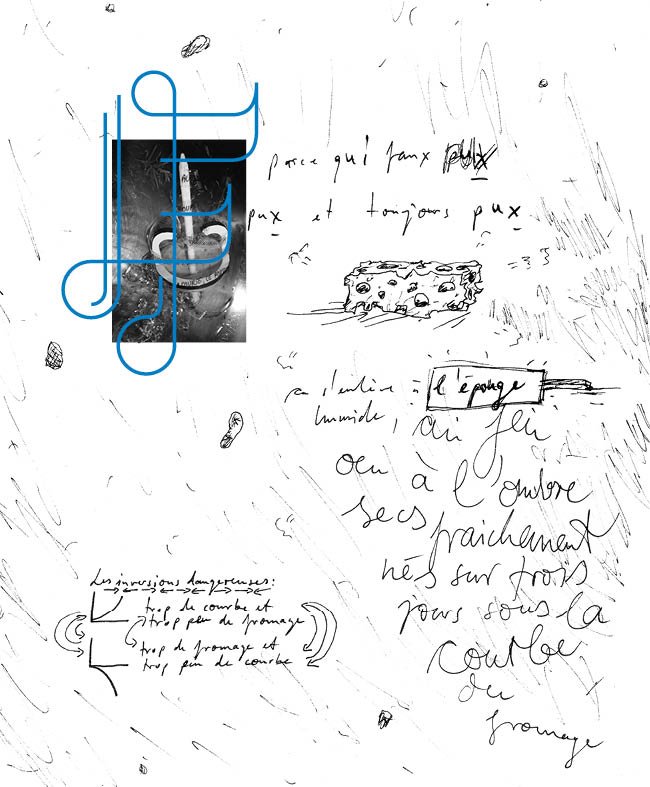 parce qu'i faux pux
pux et toujours pux
l'épouge
humide, au feu
ou à l'ombre
secs fraichement
nés sur trois
jours sous la
courbe
du
fromage
Les inversions dangereuses:
trop de courbe et
trop peu de fromage
trop de fromage et
trop peu de courbe